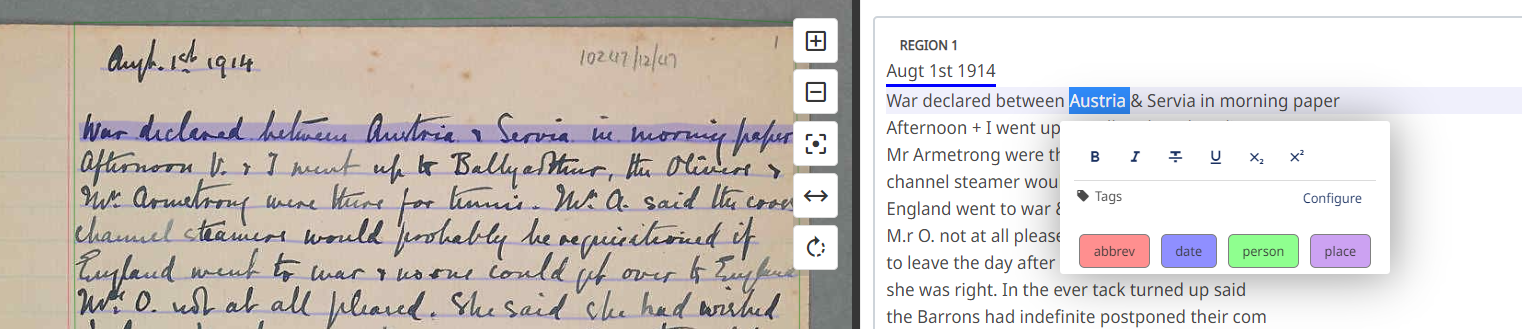 Augt. 1st 1914
10247/12/47
1
War declared between Austria & Servia in morning paper
Afternoon V. & I went up to Ballyarthur, the Oliviers &
Mr. Armstrong were there for tennis. Mr. A. said the cross
channel steamers would probably be requisitioned if
England went to war & no one could get over to England
Mrs. O. not at all pleased. She said she had wished
REGION 1
Augt 1st 1914
War declared between Austria & Servia in morning paper
Afternoon + I went up
Mr Armetrong were th
channel steamer wou
England went to war &
M.r O. not at all please
to leave the day after
she was right. In the ever tack turned up said
the Barrons had indefinite postponed their com
B I T U X₂ X²
Tags
Configure
abbrev date person place